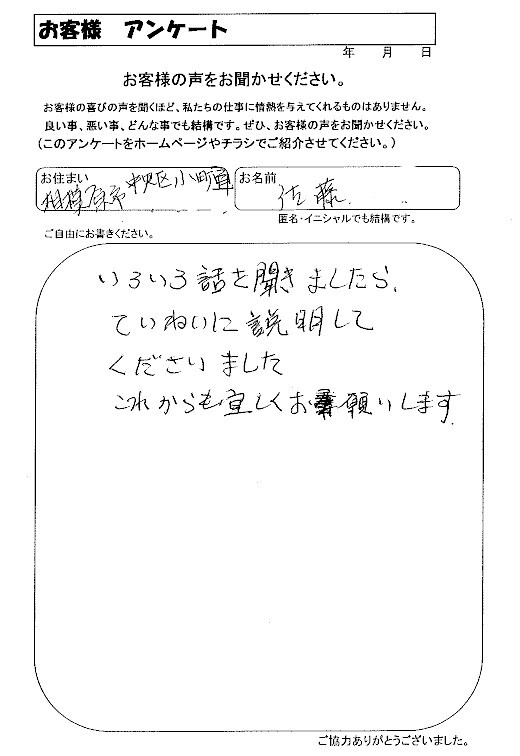 お客様 アンケート
年 月 日
お客様の声をお聞かせください。
お客様の喜びの声を聞くほど、私たちの仕事に情熱を与えてくれるものはありません。
良い事、悪い事、どんな事でも結構です。ぜひ、お客様の声をお聞かせください。
(このアンケートをホームページやチラシでご紹介させてください。)
お住まい
相模原市 中央区小町
お名前
佐藤
匿名・イニシャルでも結構です。
ご自由にお書きください。
いろいろ話を聞きましたら、
ていねいに説明して
くださいました
これからも宜しくお願いします
ご協力ありがとうございました。